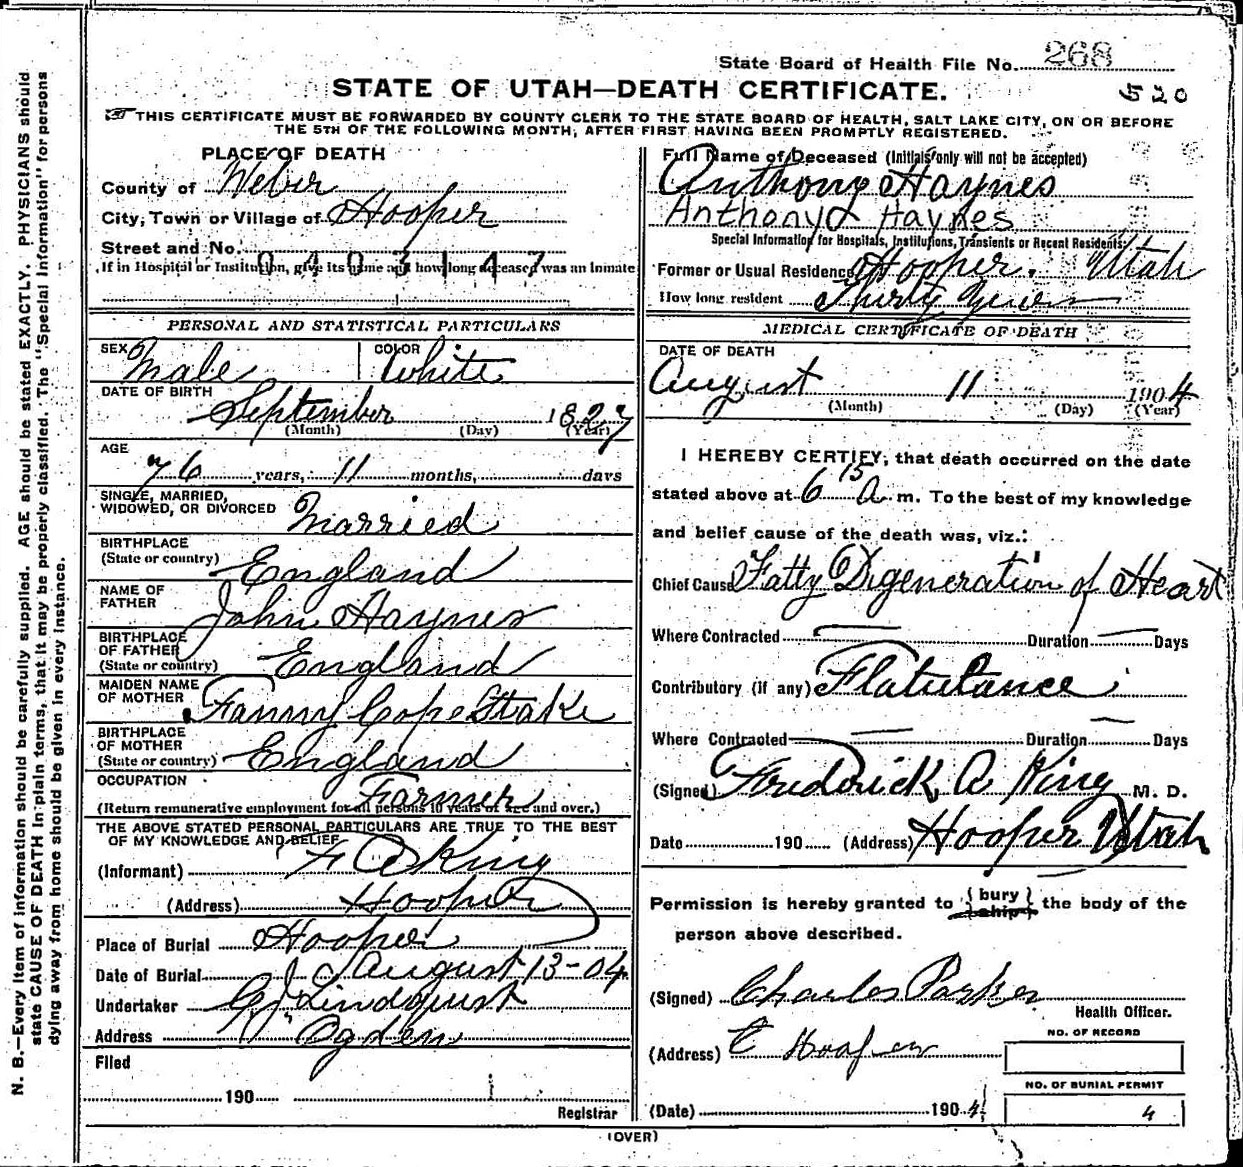 State Board of Health File No. 268
STATE OF UTAH—DEATH CERTIFICATE.
520
THIS CERTIFICATE MUST BE FORWARDED BY COUNTY CLERK TO THE STATE BOARD OF HEALTH, SALT LAKE CITY, ON OR BEFORE
THE 5TH OF THE FOLLOWING MONTH, AFTER FIRST HAVING BEEN PROMPTLY REGISTERED.
PLACE OF DEATH
County of Weber
City, Town or Village of Hooper
Street and No.
0403147
If in Hospital or Institution, give its name and how long deceased was an Inmate
PERSONAL AND STATISTICAL PARTICULARS
SEX Male COLOR White
DATE OF BIRTH
September 1827
(Month) (Day) (Year)
AGE
76 years, 11 months, days
SINGLE, MARRIED,
WIDOWED, OR DIVORCED Married
BIRTHPLACE
(State or country) England
NAME OF
FATHER John Haynes
BIRTHPLACE
OF FATHER
(State or country) England
MAIDEN NAME
OF MOTHER Fanny Cope Stake
BIRTHPLACE
OF MOTHER
(State or country) England
OCCUPATION Farmer
(Return remunerative employment for all persons 10 years of age and over.)
THE ABOVE STATED PERSONAL PARTICULARS ARE TRUE TO THE BEST
OF MY KNOWLEDGE AND BELIEF
(Informant) F A King
(Address) Hooper
Place of Burial Hooper
Date of Burial August 13-04
Undertaker C J Lindquist
Address Ogden
Filed
190
Registrar
Full Name of Deceased (Initials only will not be accepted)
Anthony Haynes
Anthony Haynes
Special Information for Hospitals, Institutions, Transients or Recent Residents:
Former or Usual Residence Hooper. Utah
How long resident Thirty Years
MEDICAL CERTIFICATE OF DEATH
DATE OF DEATH
August 11 1904
(Month) (Day) (Year)
I HEREBY CERTIFY, that death occurred on the date
stated above at 6 15 A m. To the best of my knowledge
and belief cause of the death was, viz.:
Chief Cause Fatty Digeneration of Heart
Where Contracted Duration Days
Contributory (if any) Flatulance
Where Contracted Duration Days
(Signed) Frederick A King M. D.
Date 190 (Address) Hooper Utah
Permission is hereby granted to { bury
ship } the body of the
person above described.
(Signed) Charles Parker
Health Officer.
(Address) Hooper
NO. OF RECORD
NO. OF BURIAL PERMIT
(Date) 1904 4
(OVER)
N. B.—Every item of information should be carefully supplied. AGE should be stated EXACTLY. PHYSICIANS should
state CAUSE OF DEATH in plain terms, that it may be properly classified. The "Special Information" for persons
dying away from home should be given in every instance.